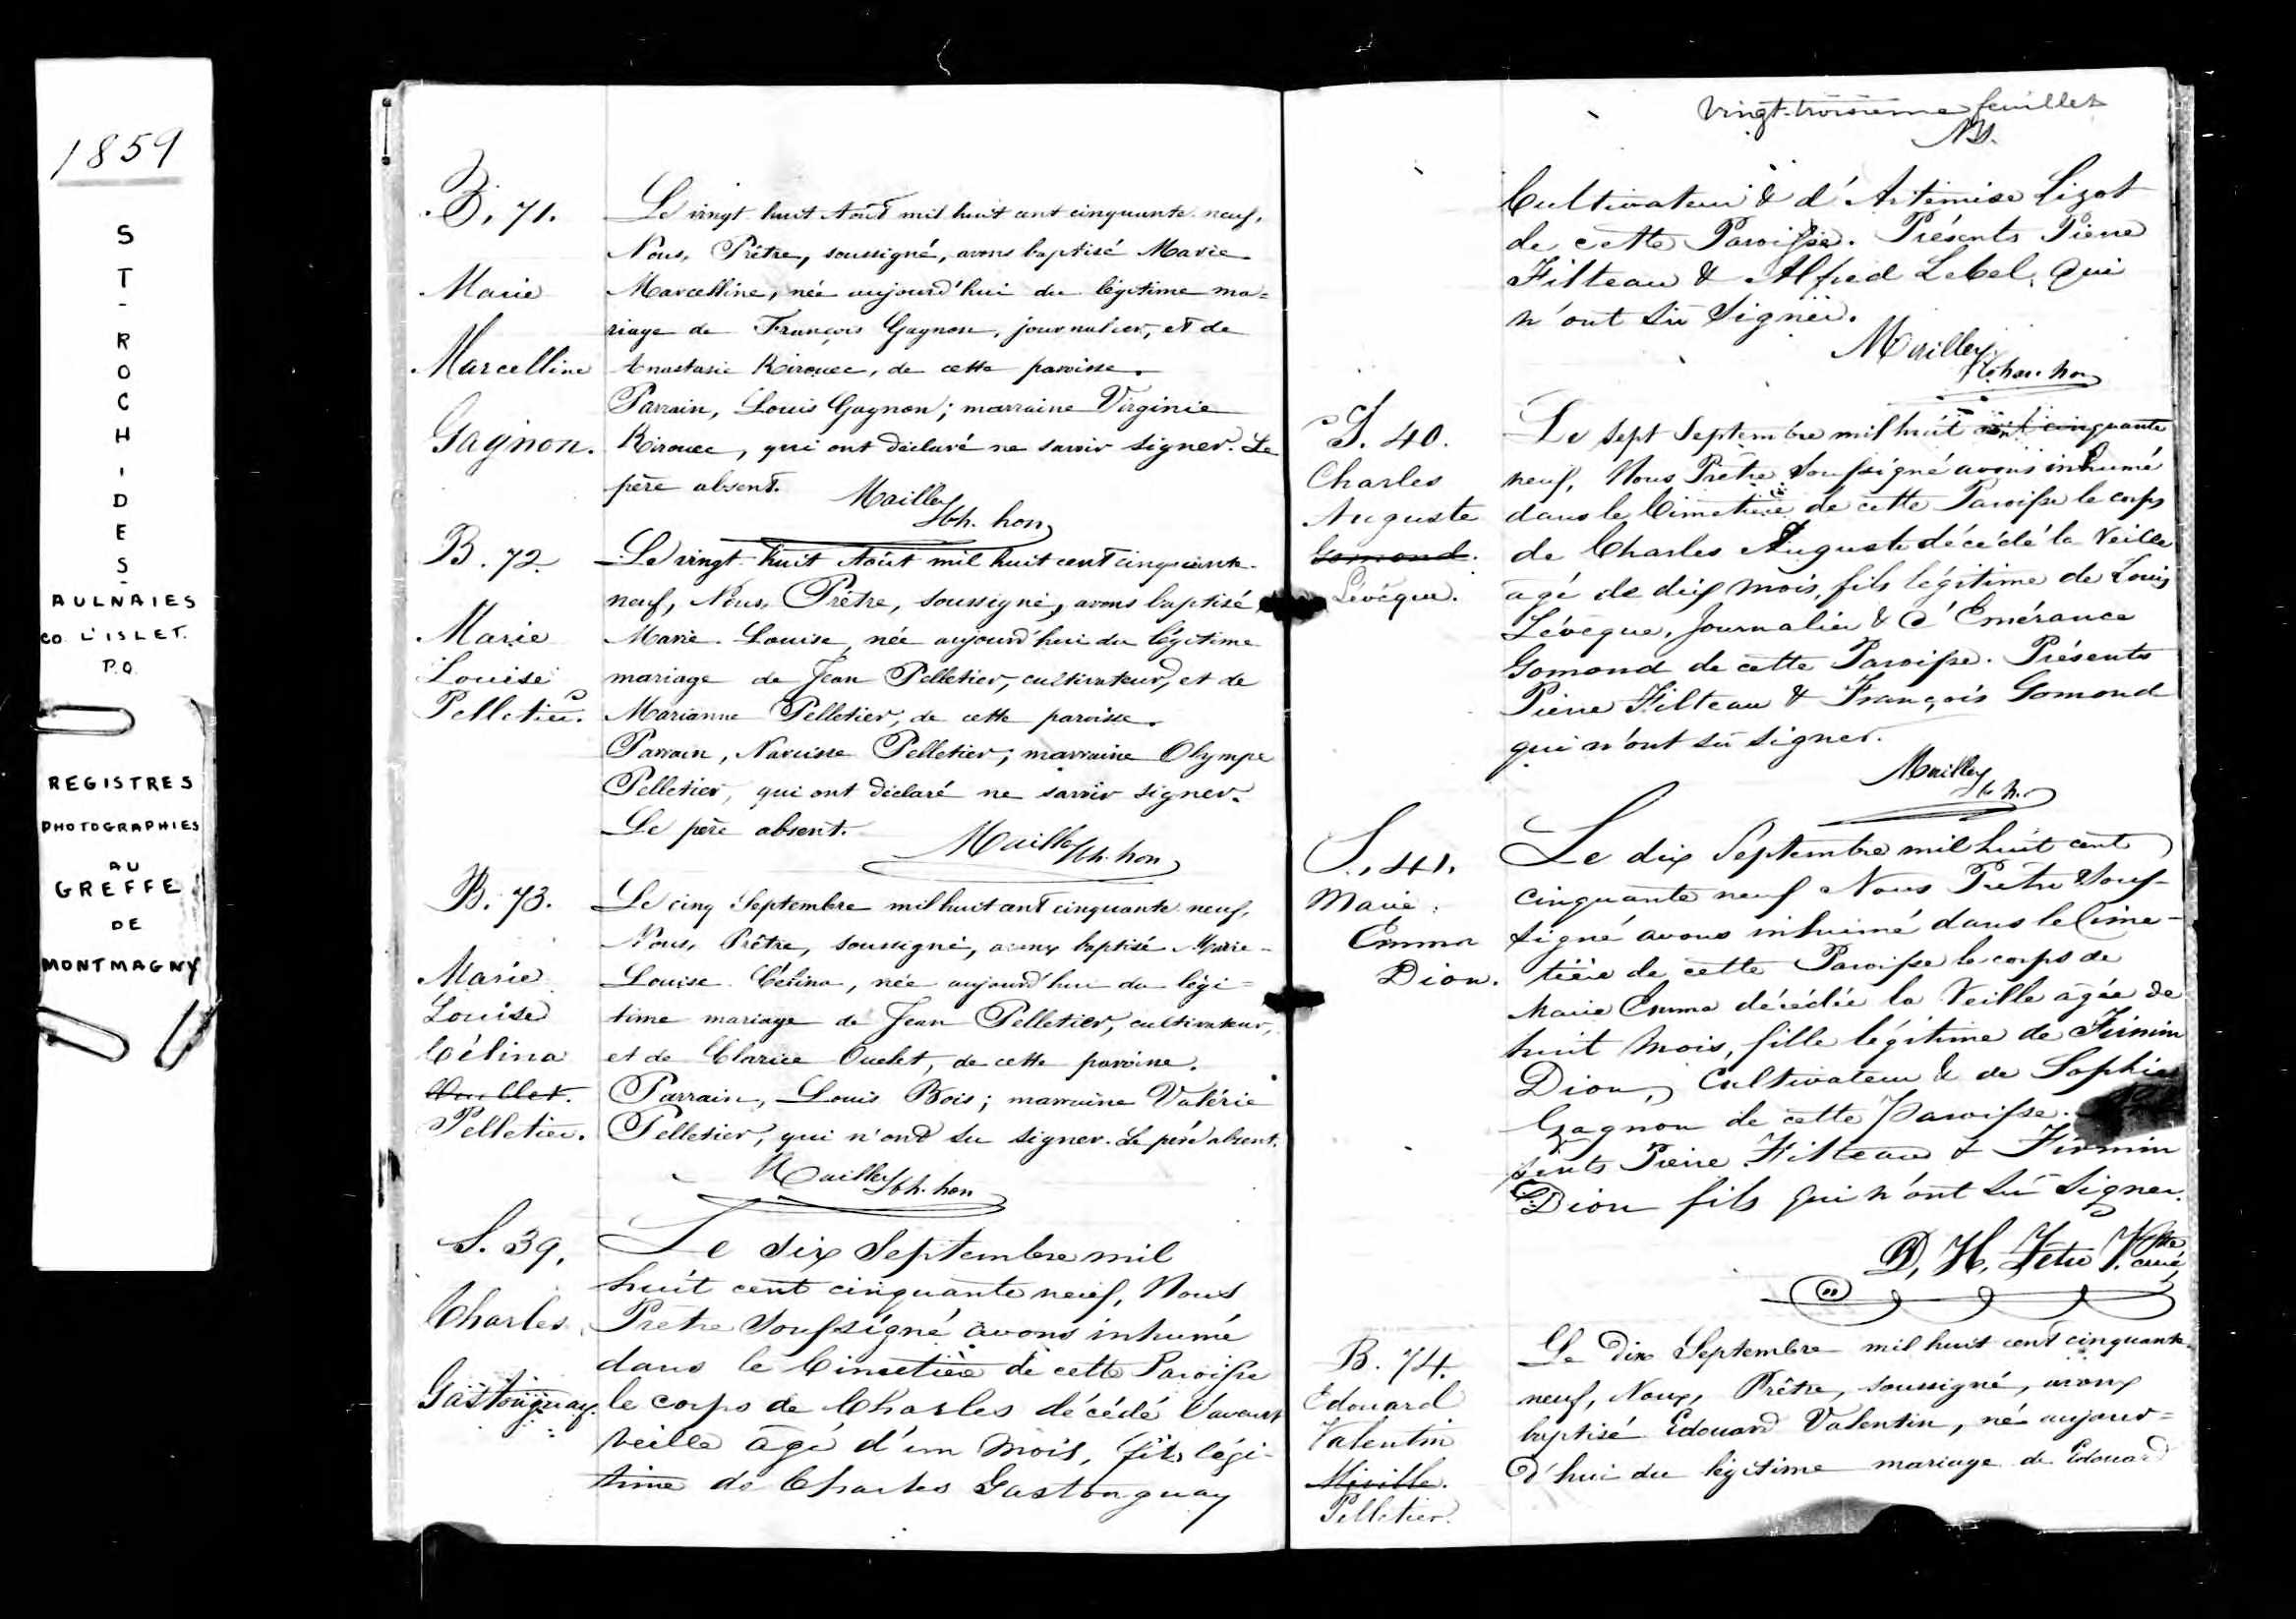 1859
ST-ROCH-DES-
AULNAIES
CO. L'ISLET.
P.Q.
REGISTRES
PHOTOGRAPHIES
AU
GREFFE
DE
MONTMAGNY
B. 71.
Marie
Marcelline
Gagnon.
Le vingt-huit Août mil huit cent cinquante-neuf,
Nous, Prêtre, soussigné, avons baptisé Marie
Marcelline, née aujourd'hui du légitime ma=
riage de François Gagnon, journalier, et de
Anastasie Kirouec, de cette paroisse.
Parrain, Louis Gagnon; marraine Virginie
Kirouec, qui ont déclaré ne savoir signer. Le
père absent.
Mailley
ch. hon
B. 72.
Marie
Louise
Pelletier.
Le vingt-huit Août mil huit cent cinquante-
neuf, Nous, Prêtre, soussigné, avons baptisé,
Marie-Louise, née aujourd'hui du légitime
mariage de Jean Pelletier, cultivateur, et de
Marianne Pelletier, de cette paroisse.
Parrain, Narcisse Pelletier; marraine Olympe
Pelletier, qui ont déclaré ne savoir signer.
Le père absent.
Mailley
ch. hon
B. 73.
Marie
Louise
Célina
Ouellet.
Pelletier.
Le cinq Septembre mil huit cent cinquante-neuf,
Nous, Prêtre, soussigné, avons baptisé Marie-
Louise Célina, née aujourd'hui du légi=
time mariage de Jean Pelletier, cultivateur,
et de Clarice Ouelet, de cette paroisse.
Parrain, Louis Bois; marraine Valérie
Pelletier, qui n'ont su signer. Le père absent.
Mailley
ch. hon
S. 39.
Charles
Gastonguay.
Le six Septembre mil
huit cent cinquante neuf, Nous
Prêtre Soussigné avons inhumé
dans le Cimetière de cette Paroisse
le corps de Charles décédé l'avant
veille âgé d'un mois, fils légi-
time de Charles Gastonguay
Vingt-troisième feuillet
Cultivateur & d'Artémise Lizot
de cette Paroisse. Présents Pierre
Filteau & Alfred Lebel, qui
n'ont sû Signer.
Mailley
ch. hon
S. 40.
Charles
Auguste
Gomond.
Lévèque.
Le sept Septembre mil huit cent cinquante
neuf, Nous Prêtre Soussigné avons inhumé
dans le Cimetière de cette Paroisse le corps
de Charles Auguste décédé la Veille
agé de dix mois, fils légitime de Louis
Lévèque, Journalier & d'Emérance
Gomond de cette Paroisse. Présents
Pierre Filteau & François Gomond
qui n'ont sû signer.
Mailley
ch. h.
S. 41.
Marie
Emma
Dion.
Le dix Septembre mil huit cent
cinquante neuf Nous Prêtre Sous-
signé avons inhumé dans le Cime-
tière de cette Paroisse le corps de
Marie Emma décédée la Veille âgée de
huit mois, fille légitime de Firmin
Dion, Cultivateur & de Sophie
Gagnon de cette Paroisse.
sents Pierre Filteau & Firmin
Dion fils qui n'ont sû Signer.
D, H, Tetu Ptre
curé
B. 74.
Edouard
Valentin
Miville.
Pelletier.
Le Dix Septembre mil huit cent cinquante-
neuf, Nous, Prêtre, soussigné, avons
baptisé Edouard Valentin, né aujour=
d'hui du légitime mariage de Edouard